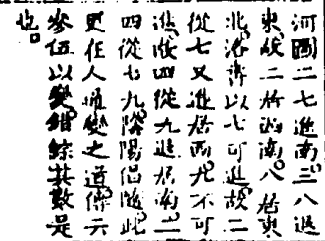 河圖二七進南三八退
東故二於西南八居東
北洛書以七可進故二
從七又進居西九不可
進故四從九進居南二
四從七九陰陽侶隨此
更在人通變之道傳云
參伍以變錯綜其數是
也